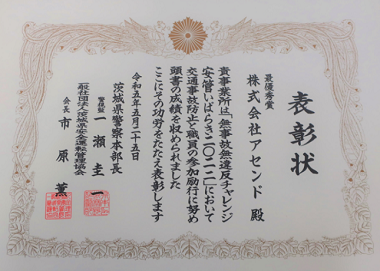 表彰状
最優秀賞
株式会社アセンド 殿
貴事業所は「無事故無違反チャレンジ
安管いばらき二〇二二」において
交通事故防止と職員の参加励行に努め
頭書の成績を収められました
ここにその功労をたたえ表彰します
令和五年五月二十五日
茨城県警察本部長
警視監 一瀬圭一
一般社団法人茨城県安全運転管理協会
会長 市原